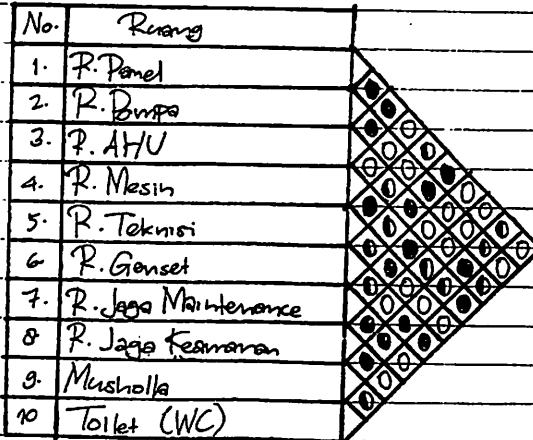 No. Ruang
1. R. Panel
2. R. Pompa
3. R. AHU
4. R. Mesin
5. R. Teknisi
6 R. Genset
7. R. Jaga Maintenance
8 R. Jaga Keamanan
9. Musholla
10 Toilet (WC)